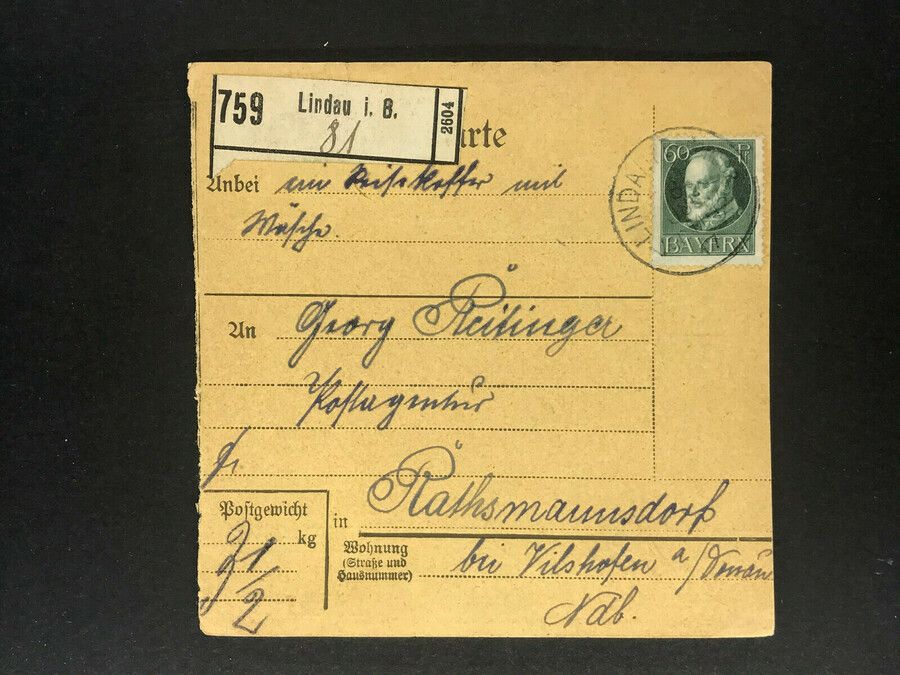 759 Lindau i. B. 2604
81
arte
60 Pf
LINDA
BAYERN
Anbei ein Reisekoffer mit
Wäsche.
An Georg Reitinger
Postagentur
fr.
Rathsmannsdorf
Postgewicht
kg
in
Wohnung
(Straße und
Hausnummer)
bei Vilshofen a/Donau
Ndb.